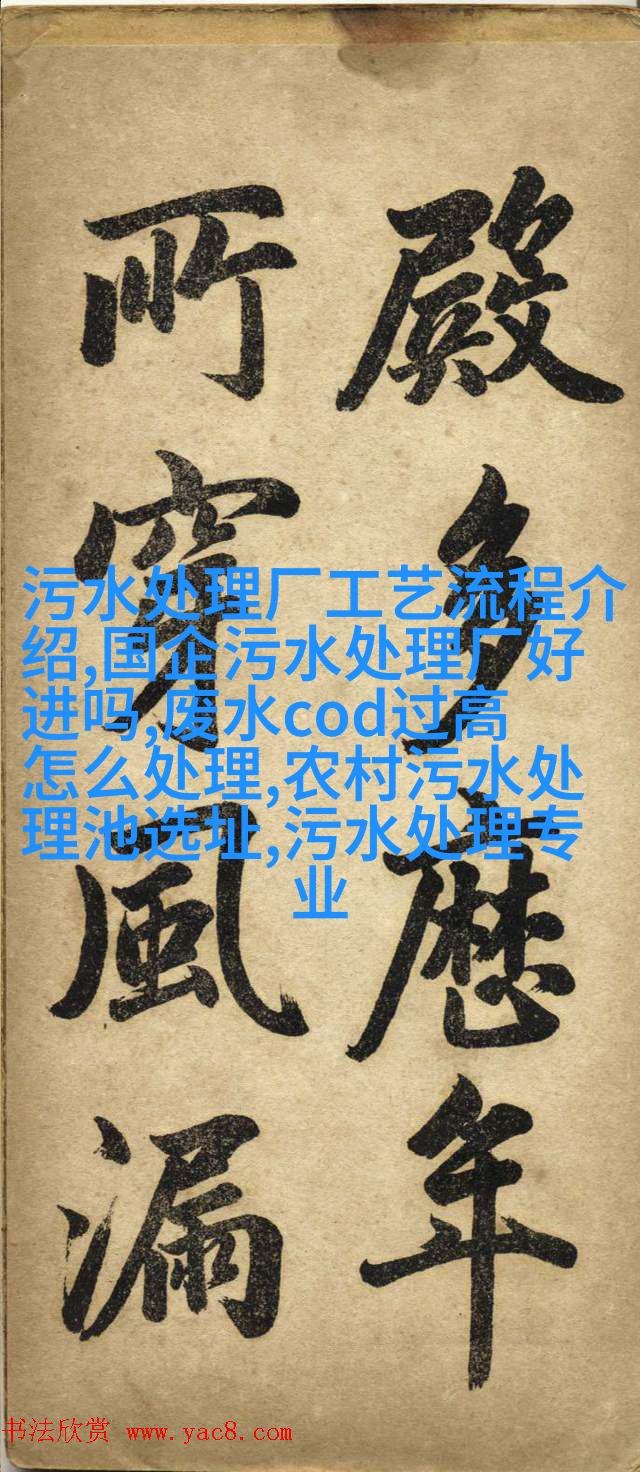 殿多歷年
所穿風漏
污水处理厂工艺流程介
绍,国企污水处理厂好
进吗,废水cod过高
怎么处理,农村污水处
理池选址,污水处理专
业
书法欣赏 www.yac8.com